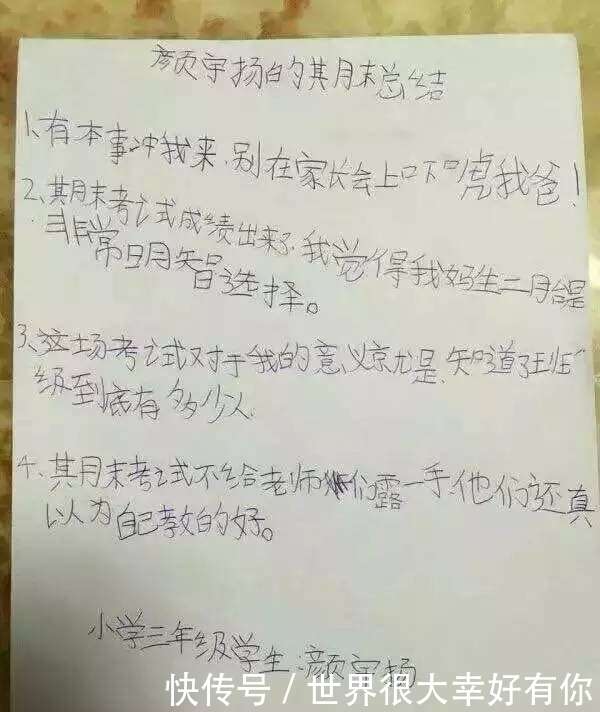 颜宇扬的期末总结
1、有本事冲我来,别在家长会上吓唬我爸!
2、期末考试成绩出来了,我觉得我妈生二月台是
非常明智选择。
3、这场考试对于我的意义京尤是,知道了班
级到底有多少人
4、期末考试不给老师们露一手,他们还真
以为自己教的好。
小学三年级学生:颜宇扬
快传号/世界很大幸好有你